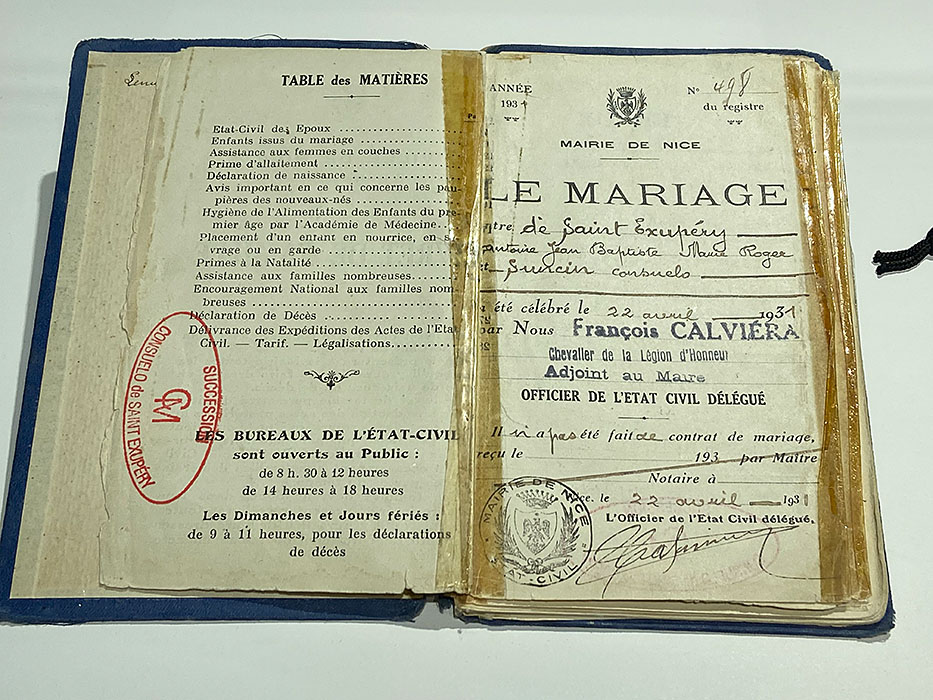 TABLE des MATIÈRES
Etat-Civil des Epoux
Enfants issus du mariage
Assistance aux femmes en couches
Prime d'allaitement
Déclaration de naissance
Avis important en ce qui concerne les pau-
pières des nouveaux-nés
Hygiène de l'Alimentation des Enfants du pre-
mier âge par l'Académie de Médecine
Placement d'un enfant en nourrice, en s
vrage ou en garde
Primes à la Natalité
Assistance aux familles nombreuses
Encouragement National aux familles nom
breuses
Déclaration de Décès
Délivrance des Expéditions des Actes de l'Etat
Civil. — Tarif. — Légalisations
SUCCESSION
CONSUELO de SAINT EXUPÉRY
LES BUREAUX DE L'ÉTAT-CIVIL
sont ouverts au Public :
de 8 h. 30 à 12 heures
de 14 heures à 18 heures
Les Dimanches et Jours fériés :
de 9 à 11 heures, pour les déclarations
de décès
ANNÉE
1931
N° 498
du registre
MAIRIE DE NICE
LE MARIAGE
ntre de Saint Exupéry
Antoine Jean Baptiste Marie Roger
et Suncin consuelo
a été célébré le 22 avril 1931
par Nous François CALVIÉRA
Chevalier de la Légion d'Honneur
Adjoint au Maire
OFFICIER DE L'ETAT CIVIL DÉLÉGUÉ
Il n'a pas été fait de contrat de mariage,
reçu le 193 par Maître
Notaire à
ice, le 22 avril 1931
L'Officier de l'Etat Civil délégué,
MAIRIE DE NICE
ETAT-CIVIL